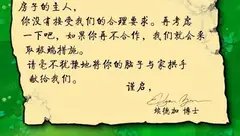 房子的主人，
你没有接受我们的合理要求。再考虑
一下吧，如果你再不合作，我们就会采
取极端措施。
请毫不犹豫地将你的脑子与家拱手
献给我们。
谨启，
埃德加 博士